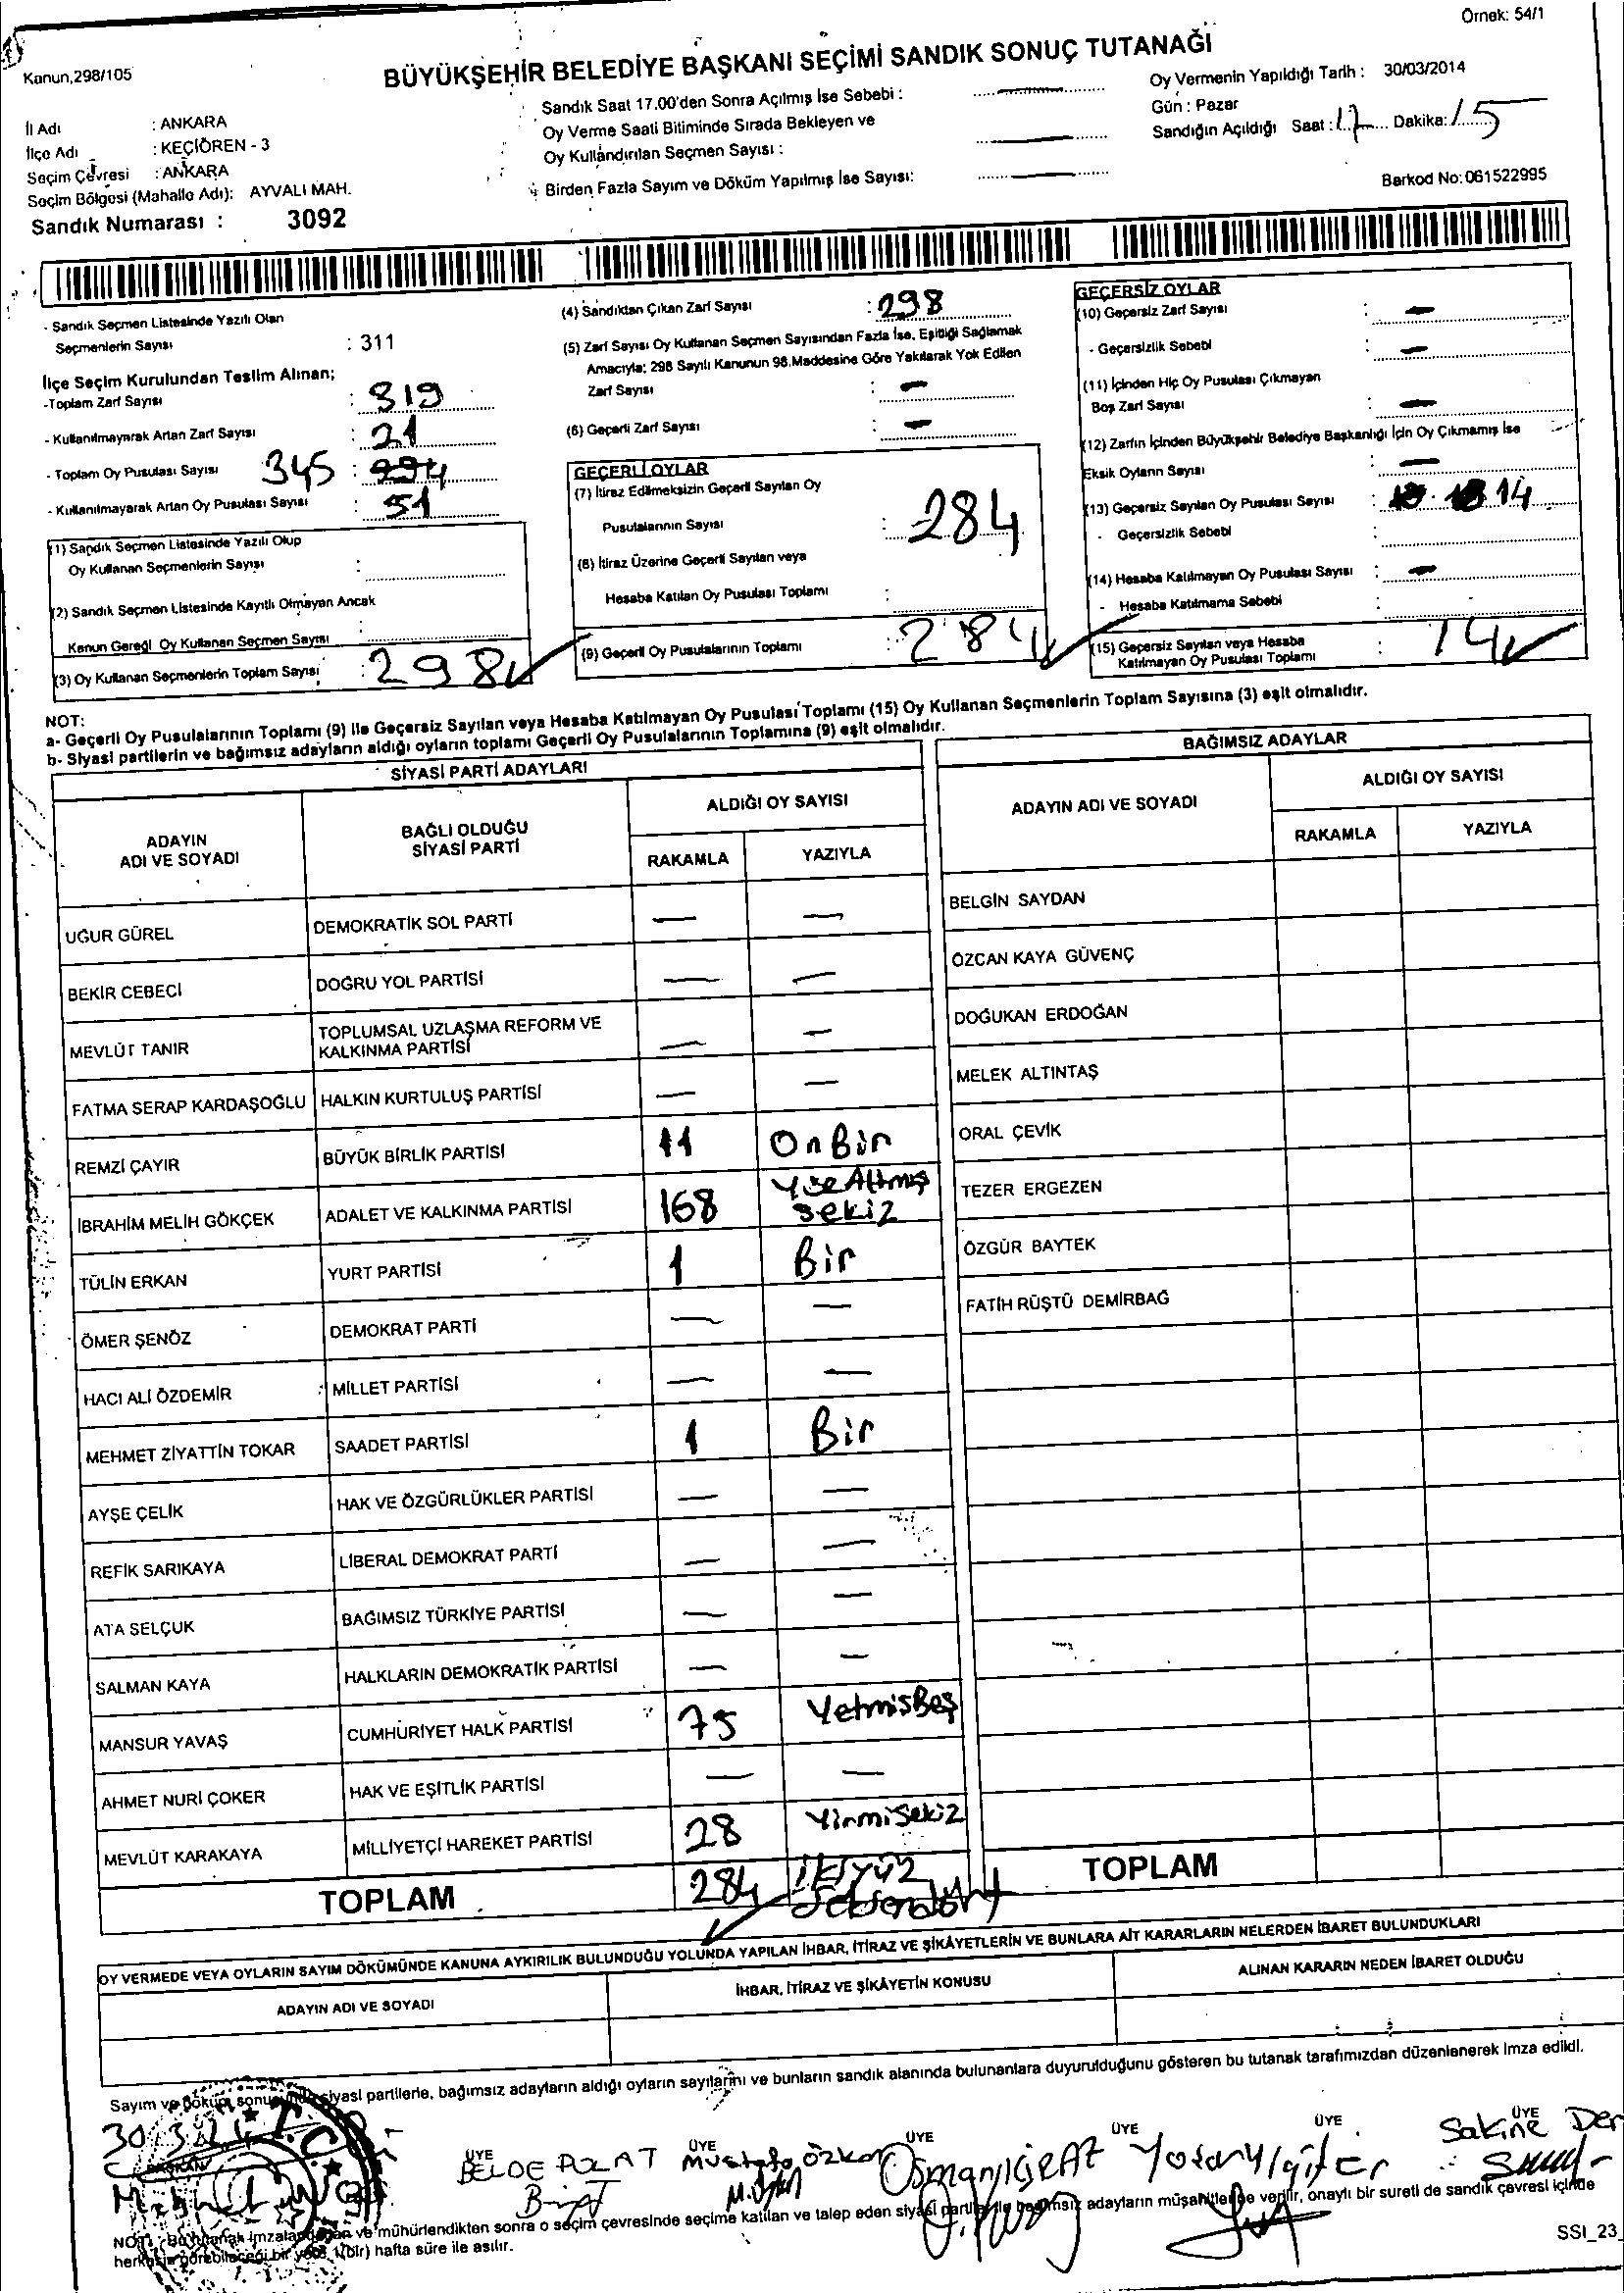 Örnek: 54/1
Kanun,298/105
BÜYÜKŞEHİR BELEDİYE BAŞKANI SEÇİMİ SANDIK SONUÇ TUTANAĞI
İl Adı : ANKARA
İlçe Adı : KEÇİÖREN - 3
Seçim Çevresi : ANKARA
Seçim Bölgesi (Mahalle Adı): AYVALI MAH.
Sandık Numarası : 3092
Sandık Saat 17.00'den Sonra Açılmış İse Sebebi :
Oy Verme Saati Bitiminde Sırada Bekleyen ve
Oy Kullandırılan Seçmen Sayısı :
Birden Fazla Sayım ve Döküm Yapılmış İse Sayısı:
Oy Vermenin Yapıldığı Tarih : 30/03/2014
Gün : Pazar
Sandığın Açıldığı Saat : 17 Dakika: 15
Barkod No: 061522995
- Sandık Seçmen Listesinde Yazılı Olan
Seçmenlerin Sayısı : 311
İlçe Seçim Kurulundan Teslim Alınan;
-Toplam Zarf Sayısı : 319
- Kullanılmayarak Artan Zarf Sayısı : 21
- Toplam Oy Pusulası Sayısı 345 :
- Kullanılmayarak Artan Oy Pusulası Sayısı : 51
(1) Sandık Seçmen Listesinde Yazılı Olup
Oy Kullanan Seçmenlerin Sayısı :
(2) Sandık Seçmen Listesinde Kayıtlı Olmayan Ancak
Kanun Gereği Oy Kullanan Seçmen Sayısı :
(3) Oy Kullanan Seçmenlerin Toplam Sayısı : 298
(4) Sandıktan Çıkan Zarf Sayısı : 298
(5) Zarf Sayısı Oy Kullanan Seçmen Sayısından Fazla İse, Eşitliği Sağlamak
Amacıyla; 298 Sayılı Kanunun 98.Maddesine Göre Yakılarak Yok Edilen
Zarf Sayısı : -
(6) Geçerli Zarf Sayısı : -
GEÇERLİ OYLAR
(7) İtiraz Edilmeksizin Geçerli Sayılan Oy
Pusulalarının Sayısı : 284
(8) İtiraz Üzerine Geçerli Sayılan veya
Hesaba Katılan Oy Pusulası Toplamı :
(9) Geçerli Oy Pusulalarının Toplamı : 284
GEÇERSİZ OYLAR
(10) Geçersiz Zarf Sayısı : -
- Geçersizlik Sebebi : -
(11) İçinden Hiç Oy Pusulası Çıkmayan
Boş Zarf Sayısı : -
(12) Zarfın İçinden Büyükşehir Belediye Başkanlığı İçin Oy Çıkmamış İse
Eksik Oyların Sayısı : -
(13) Geçersiz Sayılan Oy Pusulası Sayısı : 14
- Geçersizlik Sebebi :
(14) Hesaba Katılmayan Oy Pusulası Sayısı : -
- Hesaba Katılmama Sebebi :
(15) Geçersiz Sayılan veya Hesaba
Katılmayan Oy Pusulası Toplamı : 14
NOT:
a- Geçerli Oy Pusulalarının Toplamı (9) İle Geçersiz Sayılan veya Hesaba Katılmayan Oy Pusulası Toplamı (15) Oy Kullanan Seçmenlerin Toplam Sayısına (3) eşit olmalıdır.
b- Siyasi partilerin ve bağımsız adayların aldığı oyların toplamı Geçerli Oy Pusulalarının Toplamına (9) eşit olmalıdır.
SİYASİ PARTİ ADAYLARI
ADAYIN ADI VE SOYADI BAĞLI OLDUĞU SİYASİ PARTİ ALDIĞI OY SAYISI
RAKAMLA YAZIYLA
UĞUR GÜREL DEMOKRATİK SOL PARTİ — —
BEKİR CEBECİ DOĞRU YOL PARTİSİ — —
MEVLÜT TANIR TOPLUMSAL UZLAŞMA REFORM VE KALKINMA PARTİSİ — —
FATMA SERAP KARDAŞOĞLU HALKIN KURTULUŞ PARTİSİ — —
REMZİ ÇAYIR BÜYÜK BİRLİK PARTİSİ 11 OnBir
İBRAHİM MELİH GÖKÇEK ADALET VE KALKINMA PARTİSİ 168 YüzAltmış sekiz
TÜLİN ERKAN YURT PARTİSİ 1 Bir
ÖMER ŞENÖZ DEMOKRAT PARTİ — —
HACI ALİ ÖZDEMİR MİLLET PARTİSİ — —
MEHMET ZİYATTİN TOKAR SAADET PARTİSİ 1 Bir
AYŞE ÇELİK HAK VE ÖZGÜRLÜKLER PARTİSİ — —
REFİK SARIKAYA LİBERAL DEMOKRAT PARTİ — —
ATA SELÇUK BAĞIMSIZ TÜRKİYE PARTİSİ — —
SALMAN KAYA HALKLARIN DEMOKRATİK PARTİSİ — —
MANSUR YAVAŞ CUMHURİYET HALK PARTİSİ 75 YetmisBeş
AHMET NURİ ÇOKER HAK VE EŞİTLİK PARTİSİ — —
MEVLÜT KARAKAYA MİLLİYETÇİ HAREKET PARTİSİ 28 YirmiSekiz
TOPLAM 284 ikiyüz seksendört
BAĞIMSIZ ADAYLAR
ADAYIN ADI VE SOYADI ALDIĞI OY SAYISI
RAKAMLA YAZIYLA
BELGİN SAYDAN
ÖZCAN KAYA GÜVENÇ
DOĞUKAN ERDOĞAN
MELEK ALTINTAŞ
ORAL ÇEVİK
TEZER ERGEZEN
ÖZGÜR BAYTEK
FATİH RÜŞTÜ DEMİRBAĞ
TOPLAM
OY VERMEDE VEYA OYLARIN SAYIM DÖKÜMÜNDE KANUNA AYKIRILIK BULUNDUĞU YOLUNDA YAPILAN İHBAR, İTİRAZ VE ŞİKÂYETLERİN VE BUNLARA AİT KARARLARIN NELERDEN İBARET BULUNDUKLARI
ADAYIN ADI VE SOYADI İHBAR, İTİRAZ VE ŞİKÂYETİN KONUSU ALINAN KARARIN NEDEN İBARET OLDUĞU
Sayım ve döküm sonucunda siyasi partilerle, bağımsız adayların aldığı oyların sayılarını ve bunların sandık alanında bulunanlara duyurulduğunu gösteren bu tutanak tarafımızdan düzenlenerek imza edildi.
BAŞKAN ÜYE ÜYE ÜYE ÜYE ÜYE ÜYE
BELDE POLAT Mustafa Özkan Sakine Der
NOT : Bu tutanak imzalandıktan ve mühürlendikten sonra o seçim çevresinde seçime katılan ve talep eden siyasi partiler ile bağımsız adayların müşahitlerine verilir, onaylı bir sureti de sandık çevresi içinde
herkesin görebileceği bir yere, 1(bir) hafta süre ile asılır.
SSI_23_